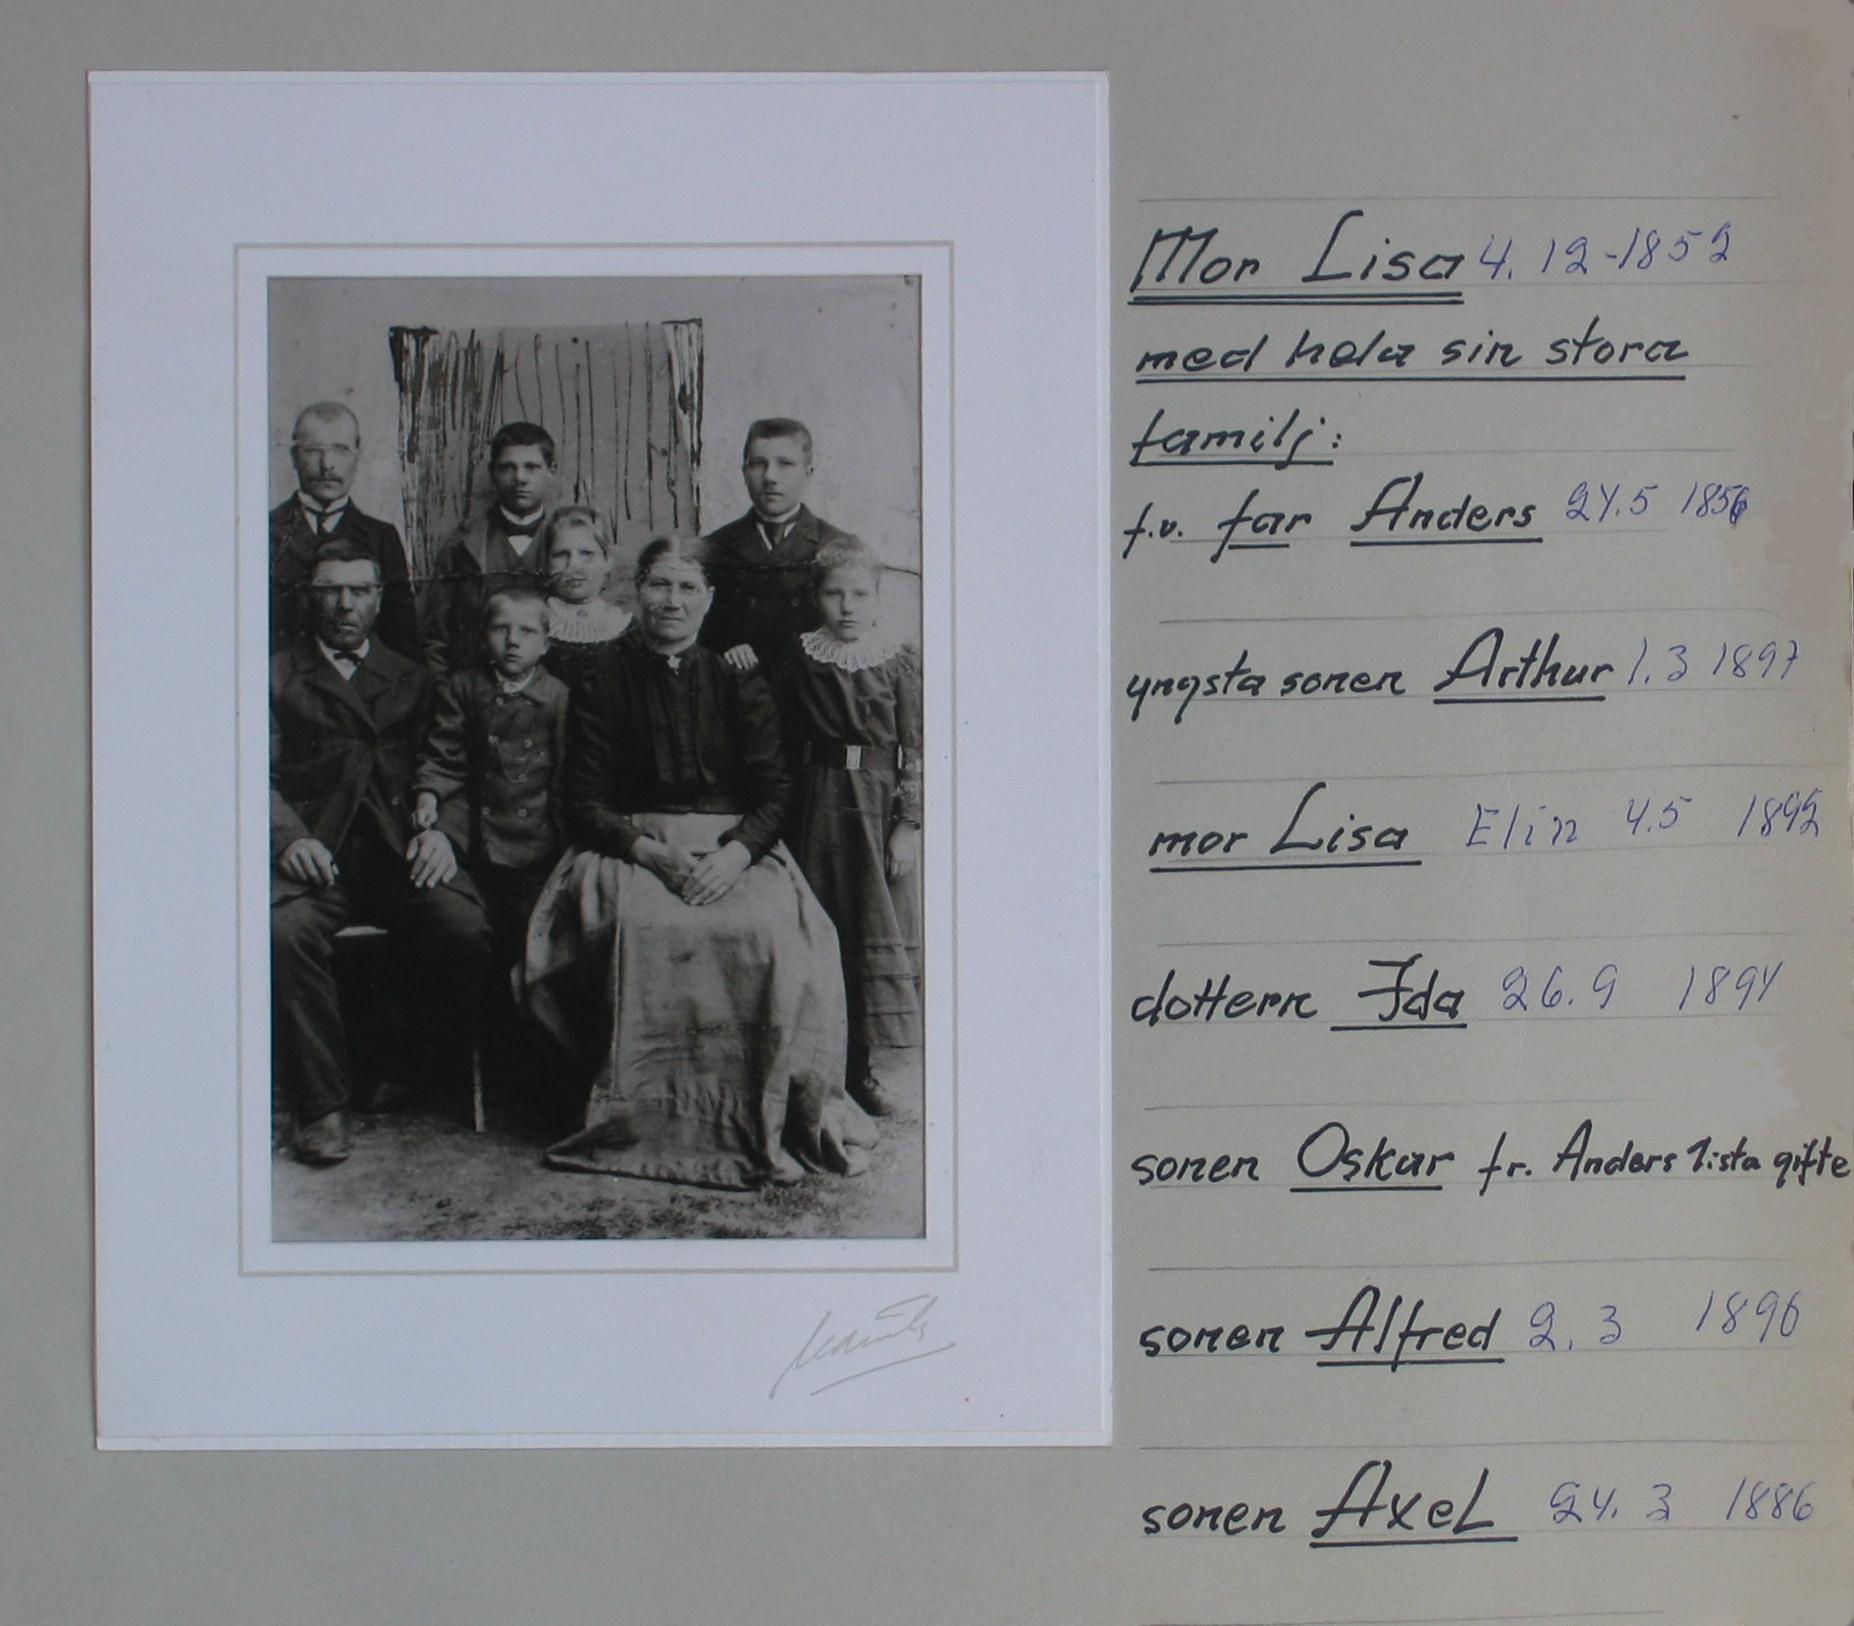 Mor Lisa 4. 12 -1852
med hela sin stora
familj:
f.v. far Anders 24.5 1856
yngsta sonen Arthur 1.3 1897
mor Lisa Elin 4.5 1892
dottern Ida 26.9 1894
sonen Oskar fr. Anders 1:sta gifte
sonen Alfred 2. 3 1890
sonen Axel 24. 3 1886